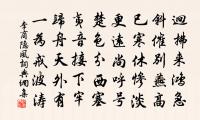 迴拂來鴻急
斜催別燕高
已寒休慘淡
更遠尚呼號
楚色分西塞
夷音接下牢
歸舟天外有
一為戒波濤
李商隱風詞典網集